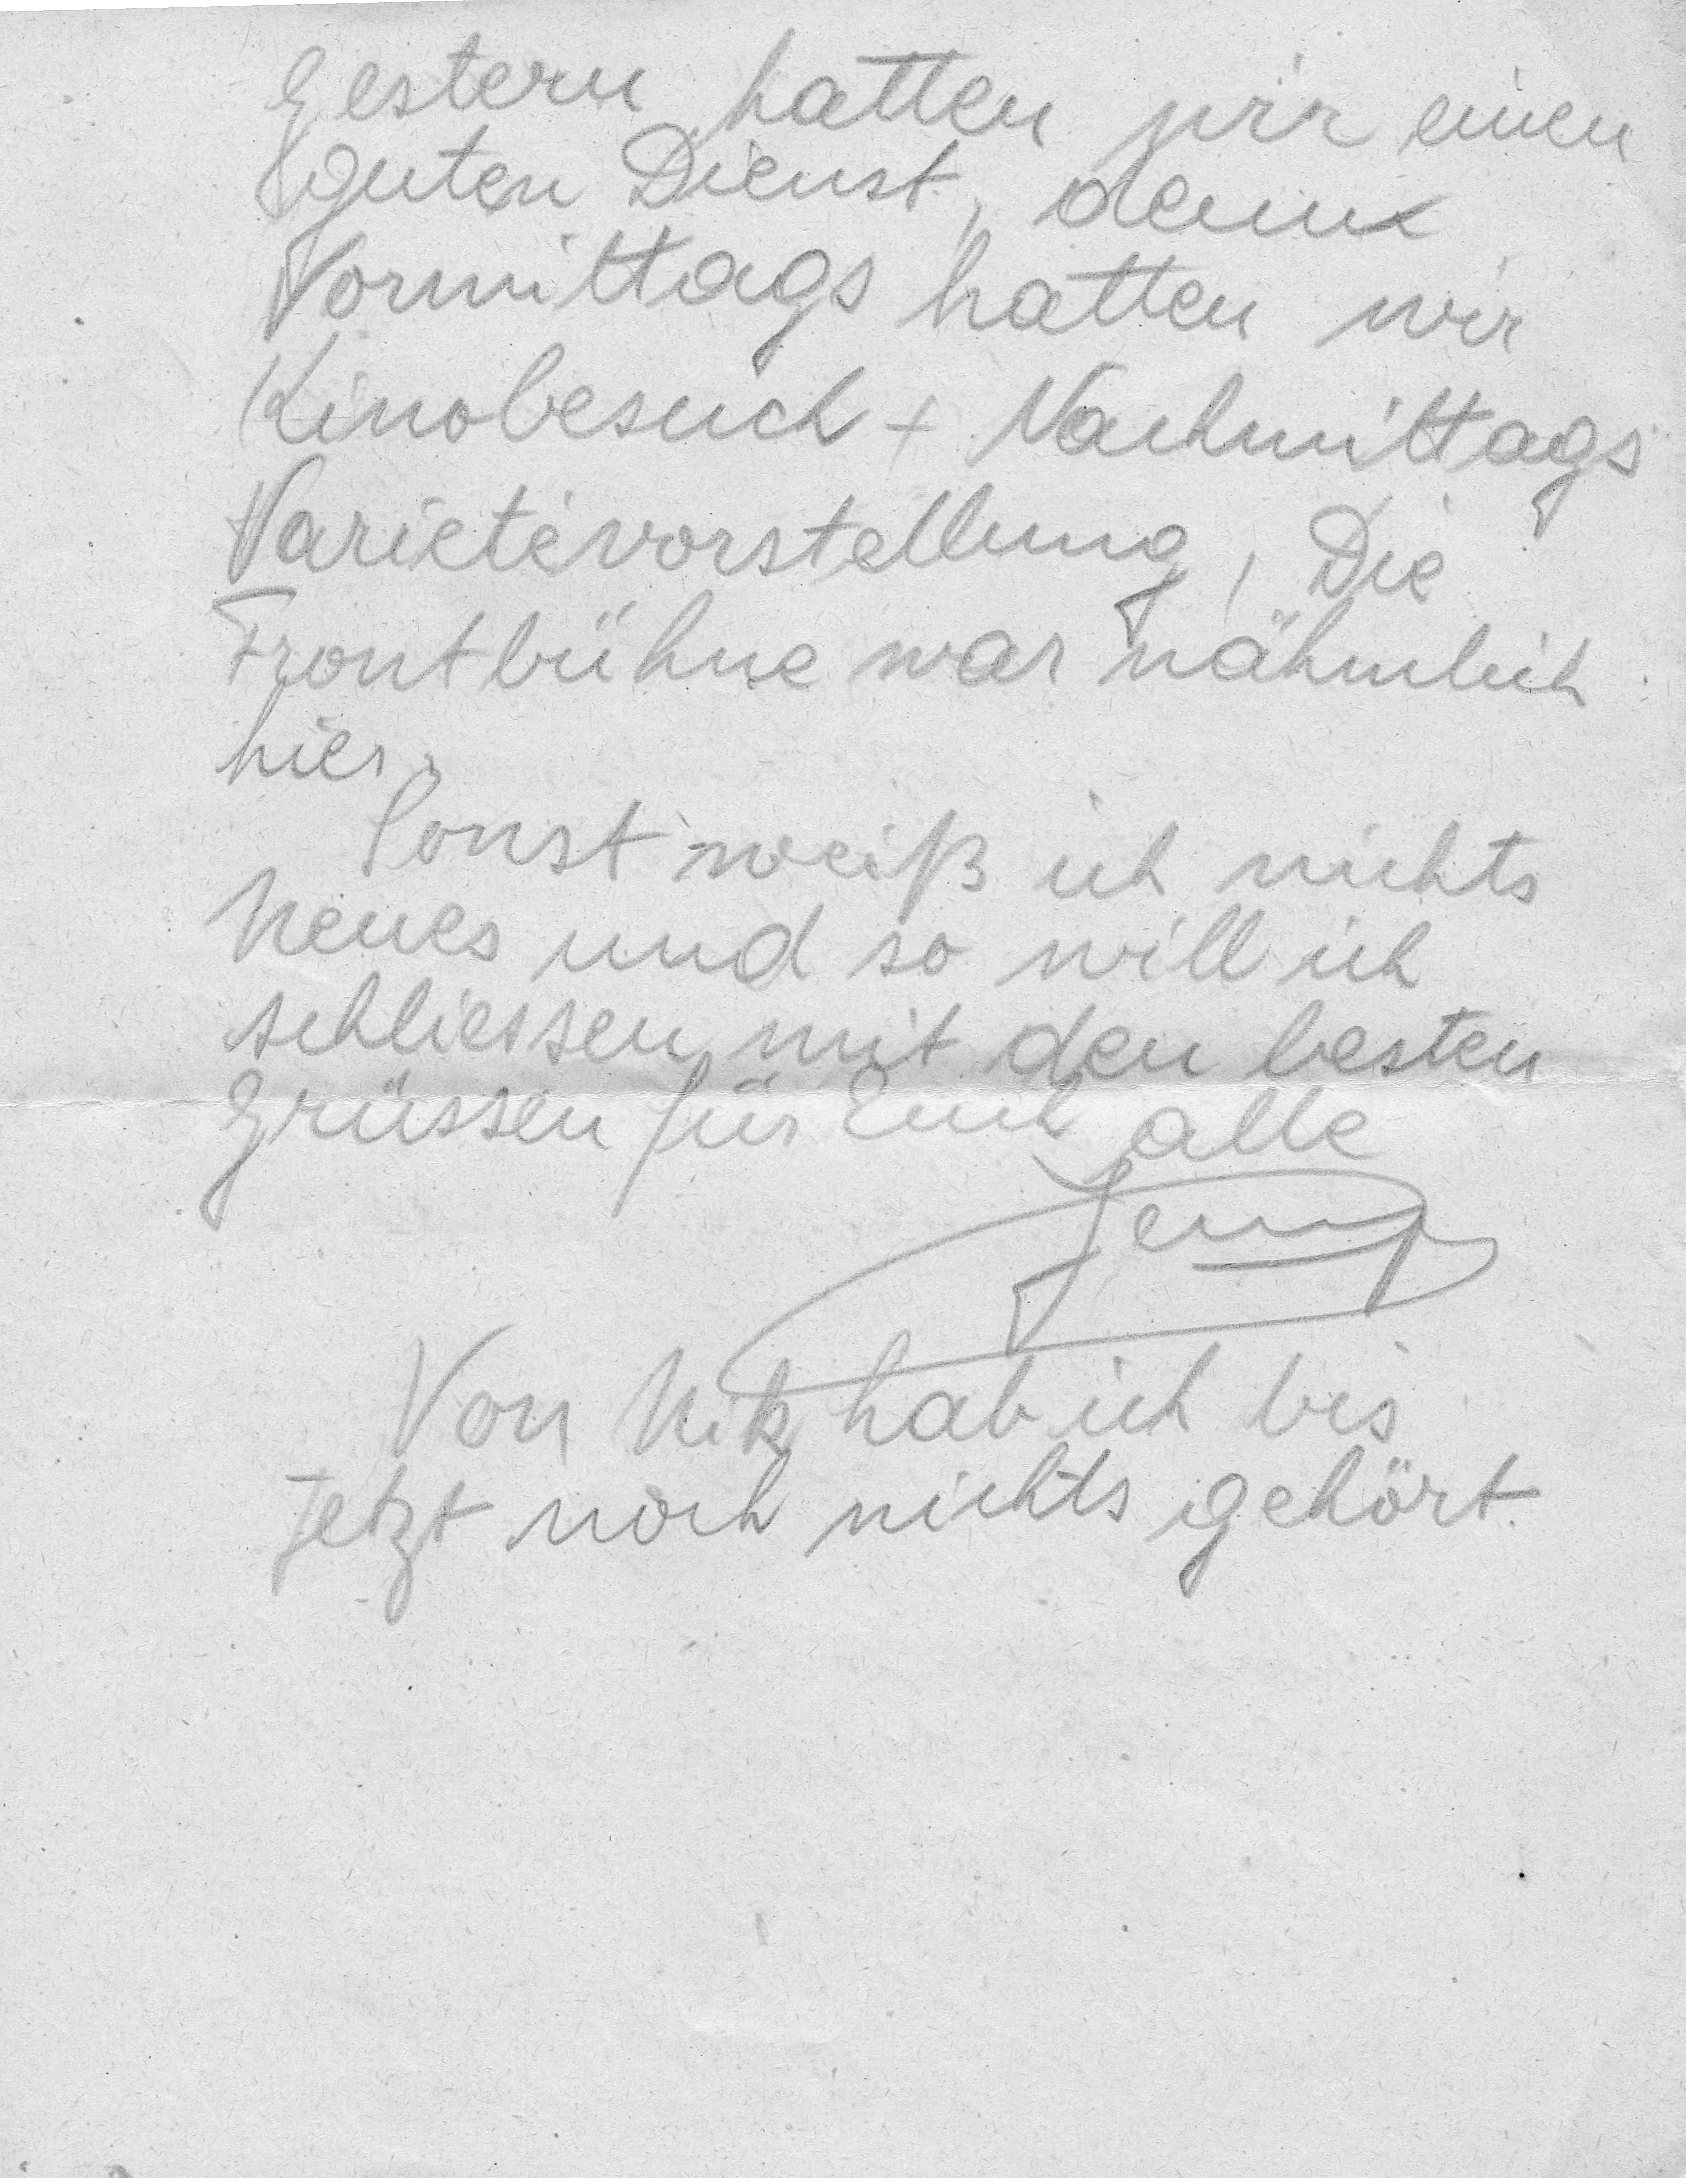 Gestern hatten wir einen
guten Dienst, denn
Vormittags hatten wir
Kinobesuch + Nachmittags
Varietévorstellung, Die
Frontbühne war nähmlich
hier.
Sonst weiß ich nichts
Neues und so will ich
schliessen mit den besten
Grüssen für Euch alle
Von Nik hab ich bis
Jetzt noch nichts gehört.